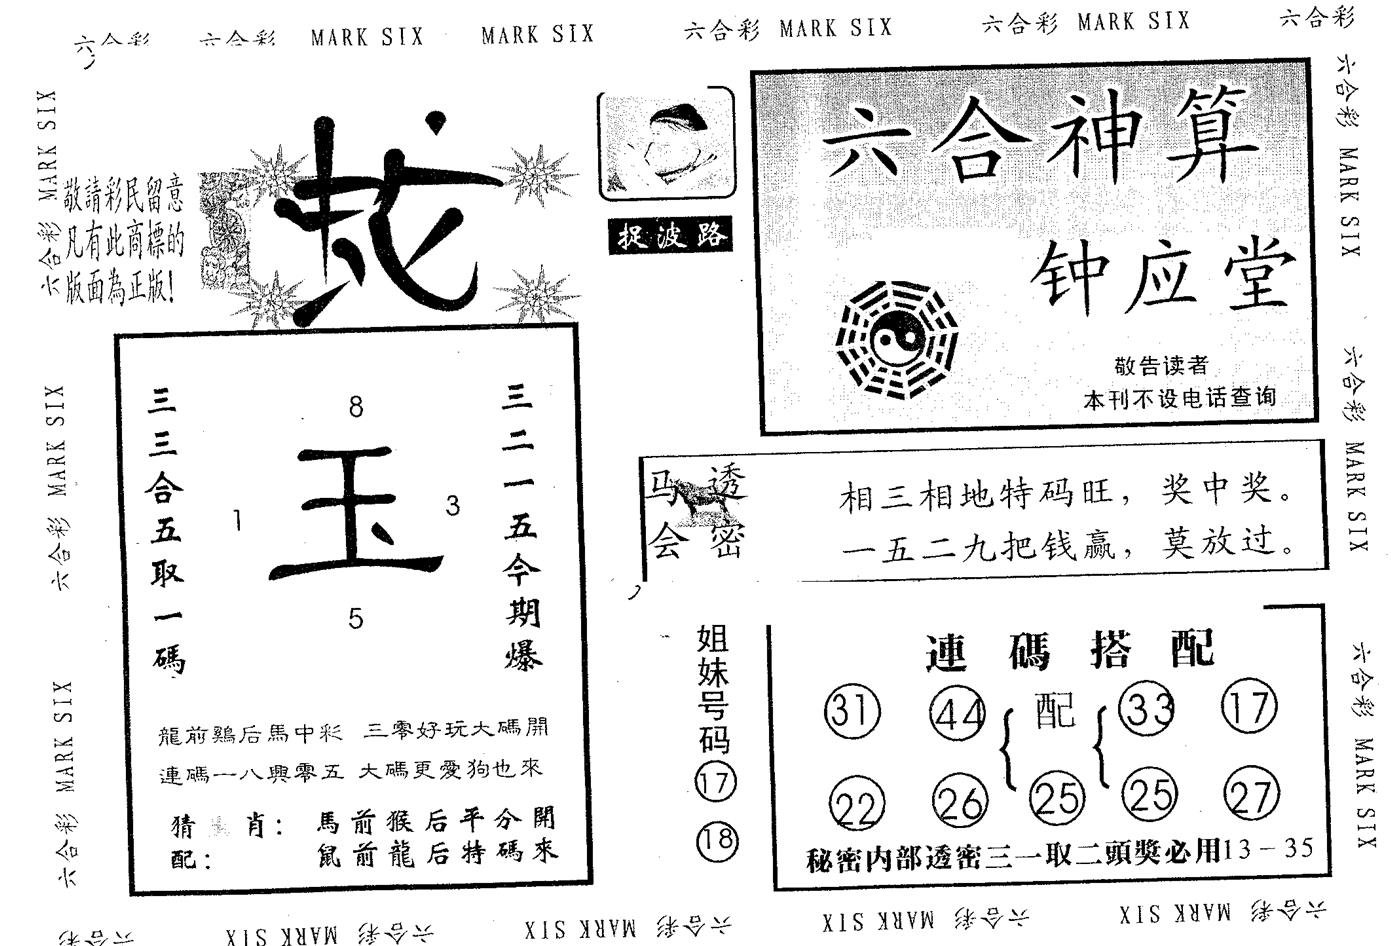 六合彩 六合彩 MARK SIX MARK SIX 六合彩 MARK SIX 六合彩 MARK SIX 六合彩
六合彩 MARK SIX
六合彩 MARK SIX
六合彩 MARK SIX
敬請彩民留意
凡有此商標的
版面為正版!
捉波路
六合神算
钟应堂
敬告读者
本刊不设电话查询
三三合五取一碼
8
1
玉
3
5
三二一五今期爆
龍前鷄后馬中彩 三零好玩大碼開
連碼一八興零五 大碼更愛狗也來
猜 肖: 馬前猴后平分開
配: 鼠前龍后特碼來
马会
透密
相三相地特码旺，奖中奖。
一五二九把钱赢，莫放过。
姐妹号码
17
18
連碼搭配
31 44 { 配 { 33 17
22 26 25 25 27
秘密内部透密三一取二頭獎必用13-35
六合彩 MARK SIX
六合彩 MARK SIX
六合彩 MARK SIX
六合彩 MARK SIX 六合彩 MARK SIX 六合彩 MARK SIX 六合彩 MARK SIX 六合彩